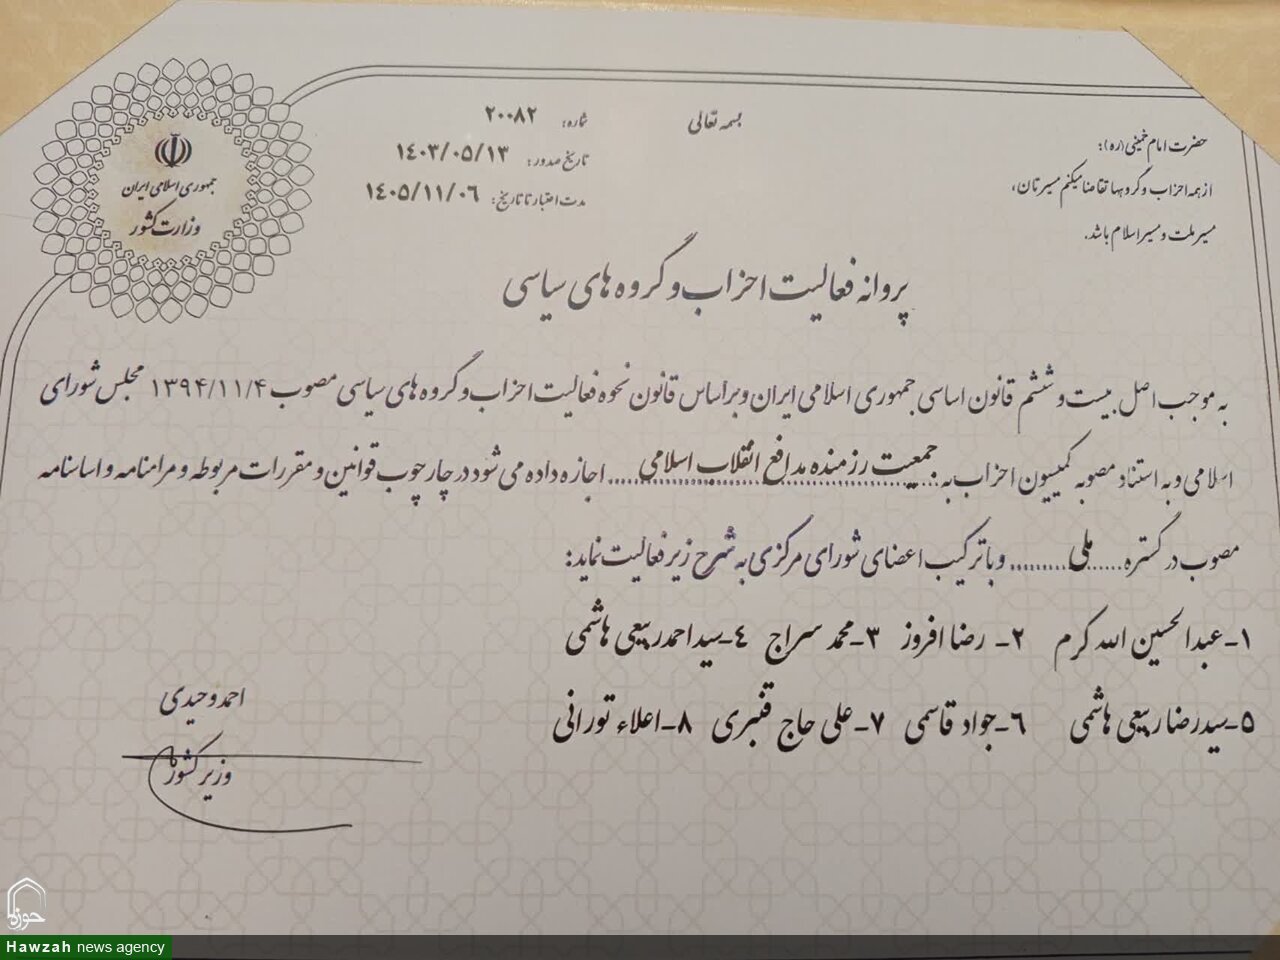 بسمه تعالی
حضرت امام خمینی (ره):
از همه احزاب و گروهها تقاضا میکنم مسیرتان،
مسیر ملت و مسیر اسلام باشد.
شماره: ۲۰۰۸۲
تاریخ صدور: ۱۴۰۳/۰۵/۱۳
مدت اعتبار تا تاریخ: ۱۴۰۵/۱۱/۰۶
جمهوری اسلامی ایران
وزارت کشور
پروانه فعالیت احزاب و گروه های سیاسی
به موجب اصل بیست و ششم قانون اساسی جمهوری اسلامی ایران و بر اساس قانون نحوه فعالیت احزاب و گروه های سیاسی مصوب ۱۳۹۴/۱۱/۴ مجلس شورای
اسلامی و به استناد مصوبه کمیسیون احزاب به جمعیت رزمنده مدافع انقلاب اسلامی اجازه داده می شود در چارچوب قوانین و مقررات مربوطه و مرامنامه و اساسنامه
مصوب در گستره ملی و با ترکیب اعضای شورای مرکزی به شرح زیر فعالیت نماید:
۱-عبدالحسین الله کرم ۲- رضا افروز ۳-محمد سراج ۴-سید احمد ربیعی هاشمی
۵-سیدرضا ربیعی هاشمی ۶-جواد قاسمی ۷-علی حاج قنبری ۸-اعلاء تورانی
احمد وحیدی
وزیر کشور
حوزه
Hawzah news agency